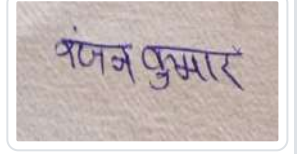 रंजन कुमार